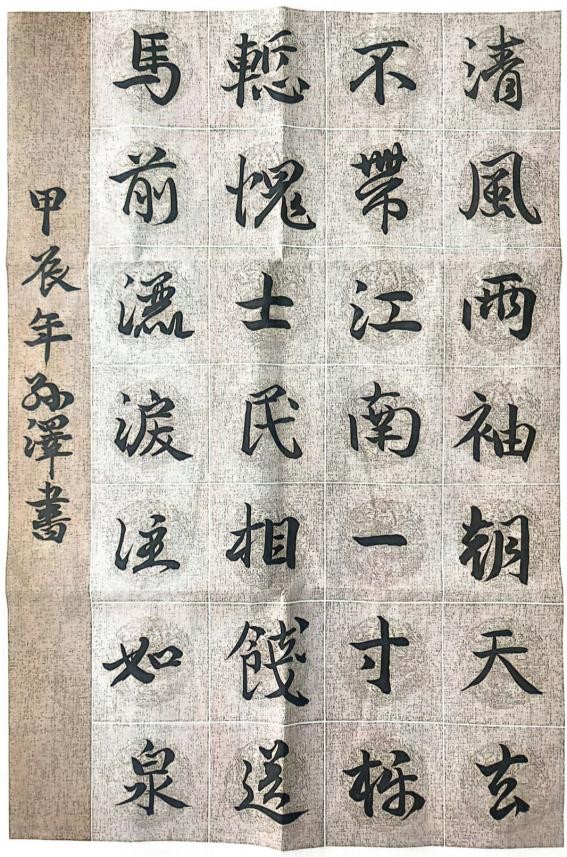 清風兩袖朝天去
不帶江南一寸棉
慙愧士民相餞送
馬前灑淚注如泉
甲辰年孫澤書